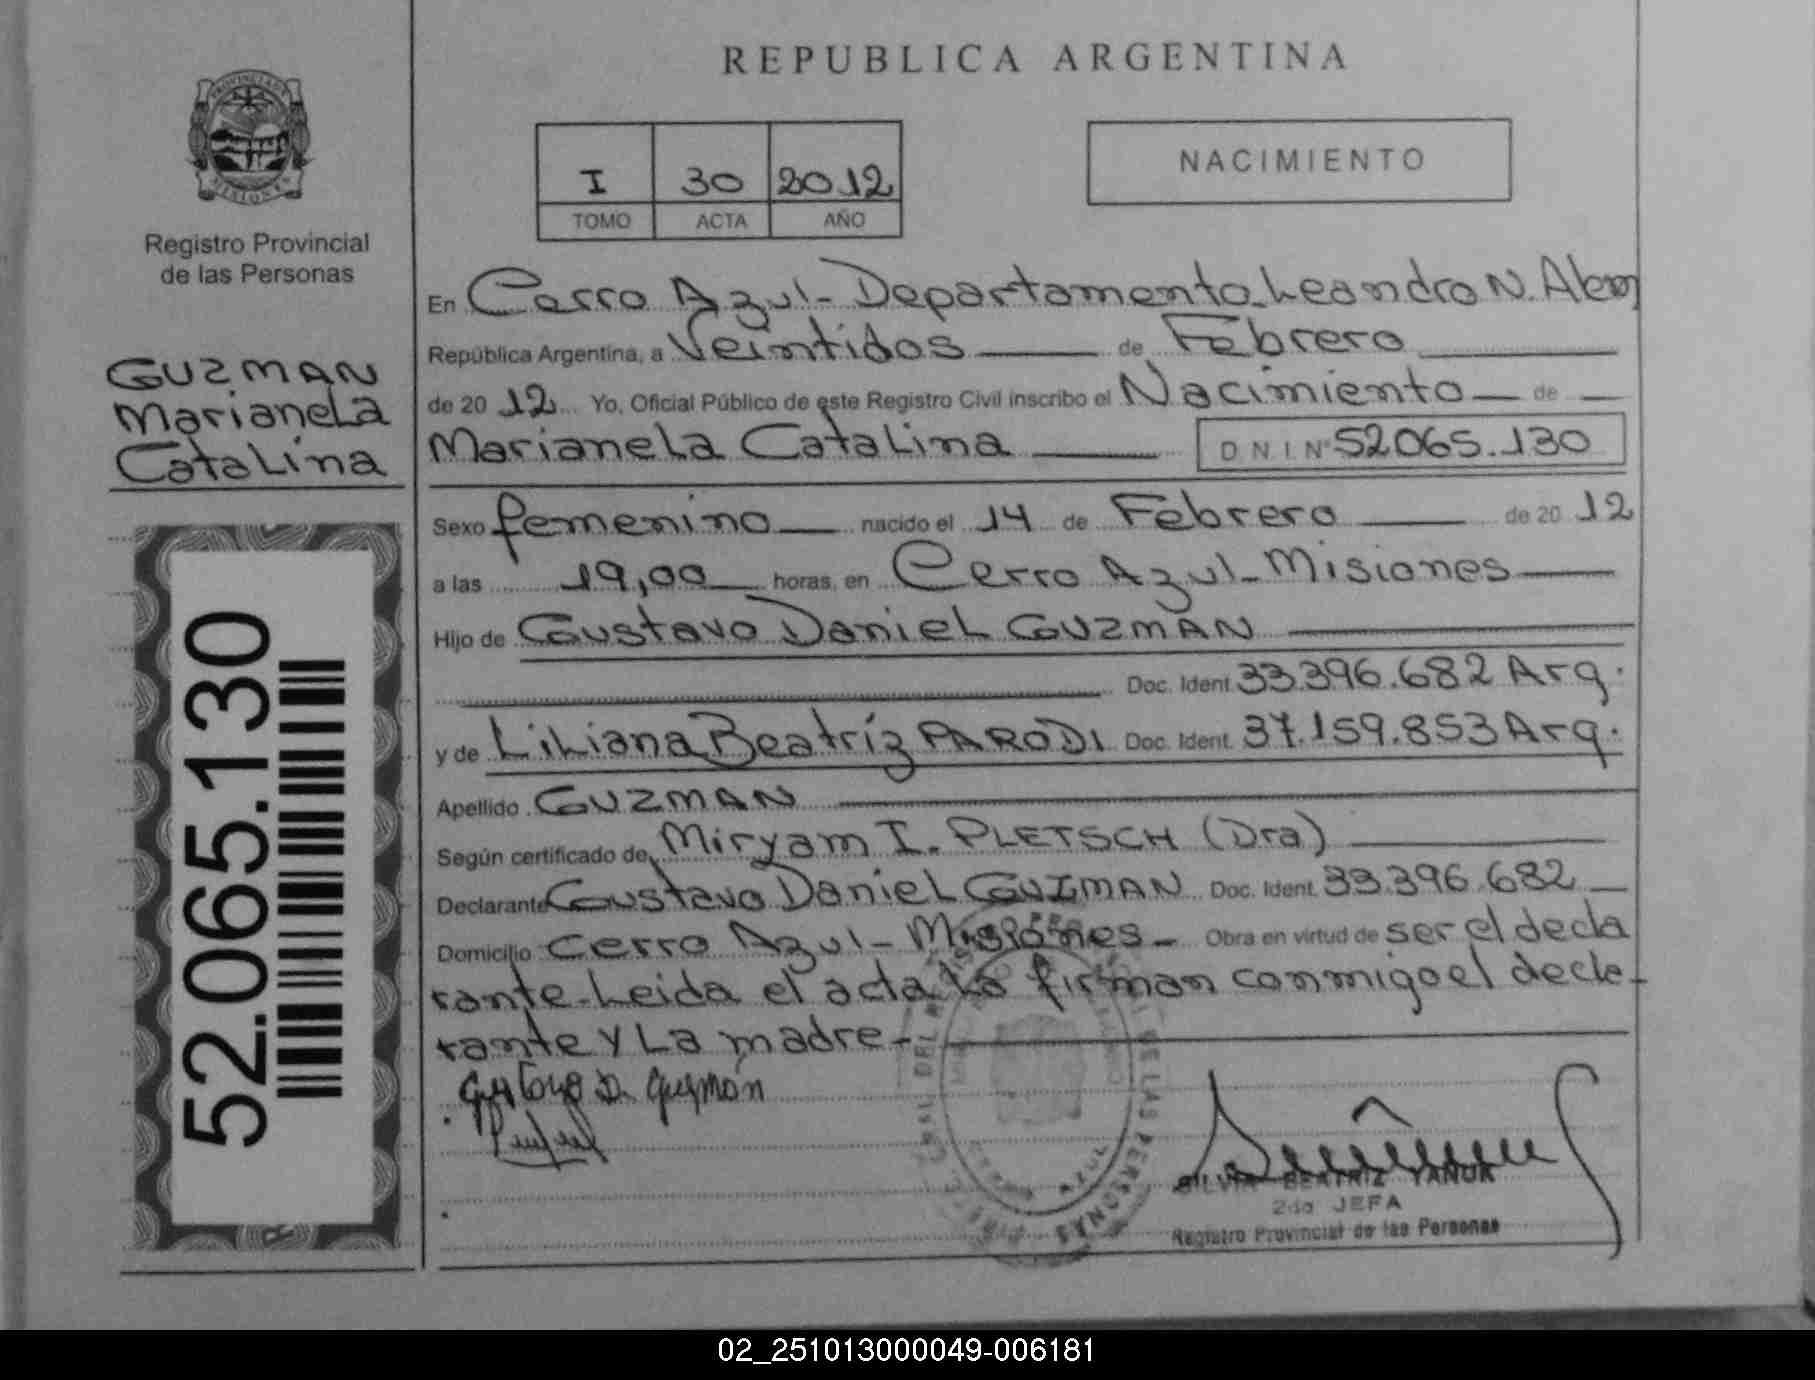 REPUBLICA ARGENTINA
PROVINCIA DE
MISIONES
Registro Provincial
de las Personas
I 30 2012
TOMO ACTA AÑO
NACIMIENTO
GUZMAN
Marianela
Catalina
52.065.130
En Cerro Azul - Departamento Leandro N. Alem
República Argentina, a Veintidos de Febrero
de 20 12 Yo, Oficial Público de este Registro Civil inscribo el Nacimiento de
Marianela Catalina D.N.I. Nº 52065.130
Sexo femenino nacido el 14 de Febrero de 20 12
a las 19,00 horas, en Cerro Azul - Misiones
Hijo de Gustavo Daniel GUZMAN
Doc. Ident. 33.396.682 Arg.
y de Liliana Beatríz PARODI Doc. Ident. 37.159.853 Arg.
Apellido GUZMAN
Según certificado de Miryam I. PLETSCH (Dra)
Declarante Gustavo Daniel GUZMAN Doc. Ident. 33.396.682
Domicilio Cerro Azul - Misiones - Obra en virtud de ser el decla
rante - Leida el acta la firman conmigo el decla-
rante y La madre -
Gustavo D. Guzmán
SILVIA BEATRIZ YANUK
2da JEFA
Registro Provincial de las Personas
02_251013000049-006181